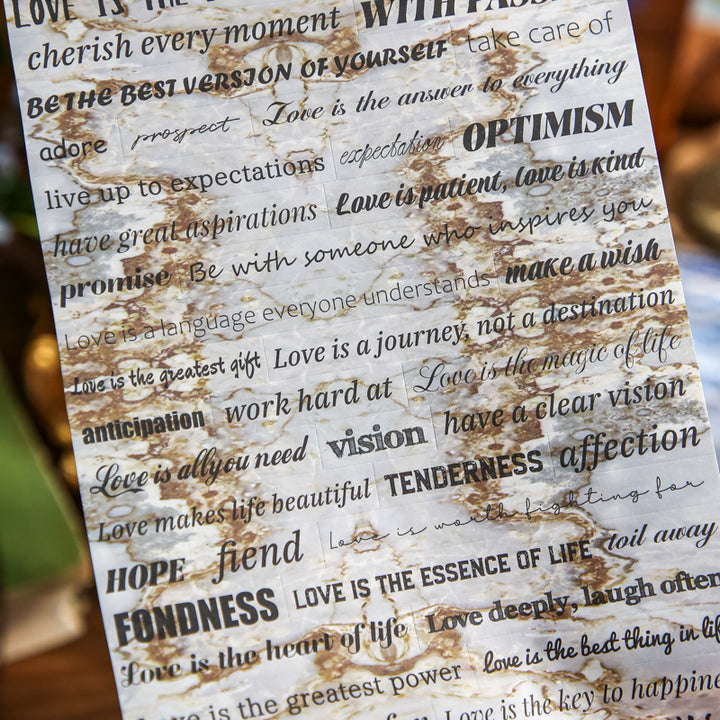 LOVE IS THE
WITH PASS
cherish every moment
BE THE BEST VERSION OF YOURSELF take care of
adore prospect Love is the answer to everything
live up to expectations expectation OPTIMISM
have great aspirations Love is patient, love is kind
promise Be with someone who inspires you
Love is a language everyone understands make a wish
Love is the greatest gift Love is a journey, not a destination
anticipation work hard at Love is the magic of life
Love is all you need vision have a clear vision
Love makes life beautiful TENDERNESS affection
HOPE fiend Love is worth fighting for
FONDNESS LOVE IS THE ESSENCE OF LIFE toil away
Love is the heart of life Love deeply, laugh often
Love is the greatest power love is the best thing in lif
Love is the key to happine